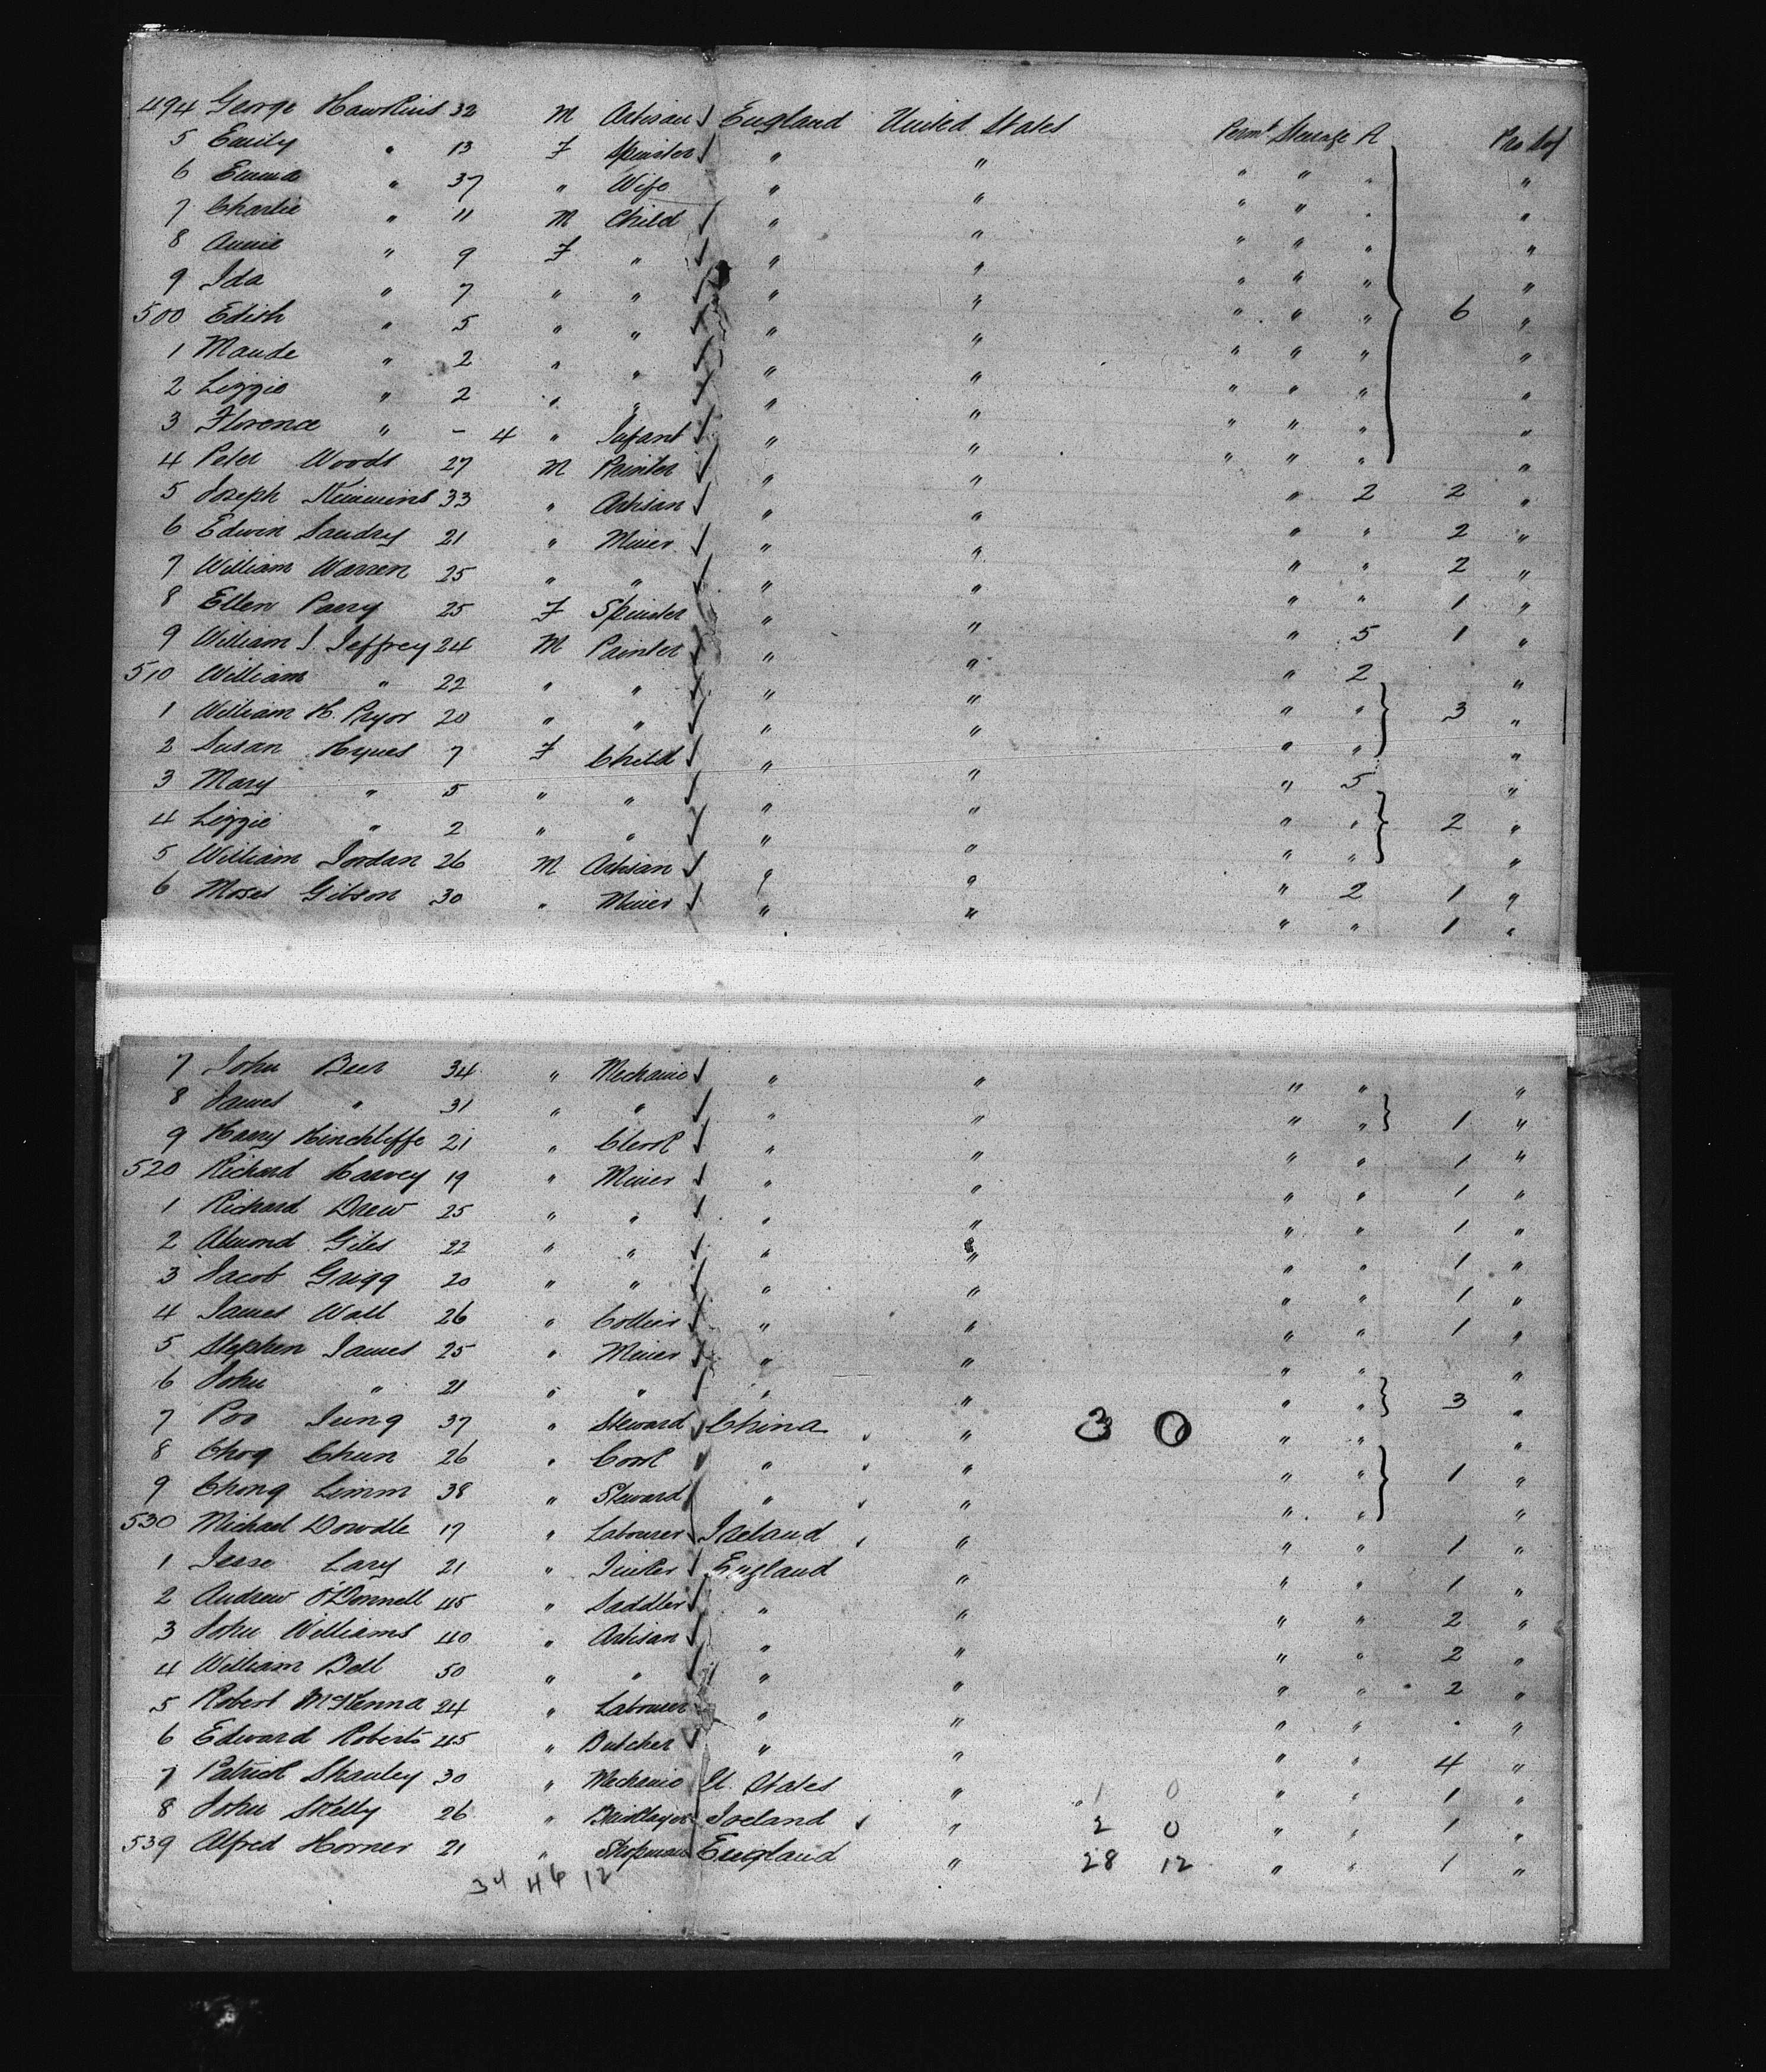 494 George Hawkins 32 M Artisan ✓ England United States Permt Steerage A
5 Emily " 13 F Spinster ✓ " " " " "
6 Emma " 37 " Wife " " " " " "
7 Charlie " 11 M Child ✓ " " " " " "
8 Annie " 9 F " ✓ " " " " " "
9 Ida " 7 " " ✓ " " " " " "
500 Edith " 5 " " ✓ " " " " " 6 "
1 Maude " 2 " " ✓ " " " " " "
2 Lizzie " 2 " " ✓ " " " " " "
3 Florence " - 4 " Infant ✓ " " " " " "
4 Peter Woods 27 M Printer ✓ " " " 2 2 "
5 Joseph 33 " Artisan ✓ " " " " 2 "
6 Edwin Sandry 21 " Miner ✓ " " " " 2 "
7 William Warren 25 " " ✓ " " " " 1 "
8 Ellen 25 F Spinster " " " 5 1 "
9 William J. Jeffrey 24 M Painter ✓ " " " 2 "
510 William " 22 " " ✓ " " " " 3 "
1 William H. Pryor 20 " " ✓ " " " " "
2 Susan Hynes 7 F Child ✓ " " " 5 "
3 Mary " 5 " " ✓ " " " " 2 "
4 Lizzie " 2 " " ✓ " " " " "
5 William Jordan 26 M Artisan ✓ " " " 2 1 "
6 Moses Gibson 30 " Miner ✓ " " " " 1 "
7 John Beer 34 " Mechanic ✓ " " " " "
8 James " 31 " " ✓ " " " " 1 "
9 Harry Hinchliffe 21 " Clerk ✓ " " " " 1 "
520 Richard Harvey 19 " Miner ✓ " " " " 1 "
1 Richard Drew 25 " " ✓ " " " " 1 "
2 Giles 22 " " ✓ " " " " 1 "
3 Jacob Grigg 20 " " ✓ " " " " 1 "
4 James Wall 26 " Collier ✓ " " " " 1 "
5 Stephen James 25 " Miner ✓ " " " " "
6 John " 21 " " ✓ " " " " 3 "
7 Poo Jung 37 " Steward ✓ China " 3 0 " " "
8 Chog Chun 26 " Cook " " " " 1 "
9 Chong Limm 38 " Steward " " " " "
530 Michael Dowdle 19 " Labourer Ireland " " " 1 "
1 Jesse 21 " ✓ England " " " 1 "
2 Andrew O'Donnell 45 " Saddler ✓ " " " " 2 "
3 John Williams 40 " Artisan ✓ " " " " 2 "
4 William Bell 50 " " ✓ " " " " 2 "
5 Robert McKenna 24 " Labourer " " " " "
6 Edward Roberts 45 " Butcher ✓ " " " " 4 "
7 Patrick Shanley 30 " Mechanic U. States " 1 0 " " 1 "
8 John Skelly 26 " Bricklayer Ireland ✓ " 2 0 " " 1 "
539 Alfred Horner 21 " Shopman England " 28 12 " " 1 "
34 46 12